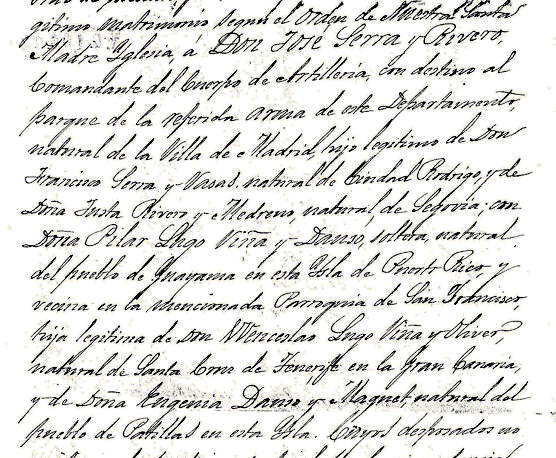 gitimo matrimonio segun el Orden de Nuestra Santa
Madre Yglesia, á Don José Serra y Rivero,
Comandante del Cuerpo de Artillería, con destino al
parque de la referida arma de este Departamento,
natural de la Villa de Madrid, hijo legitimo de Don
Francisco Serra y Vasas, natural de Ciudad Rodrigo, y de
Doña Justa Rivero y Medreno, natural de Segovia; con
Doña Pilar Lugo Viña y Dauso, soltera, natural
del pueblo de Guayama en esta Ysla de Puerto Rico, y
vecina en la mencionada Parroquia de San Francisco,
hija legitima de Don Wenceslao Lugo Viña y Oliver,
natural de Santa Cruz de Tenerife en la Gran Canaria,
y de Doña Eugenia Dauso y Maquet, natural del
pueblo de Patillas en esta Ysla. Cuyos desposados no